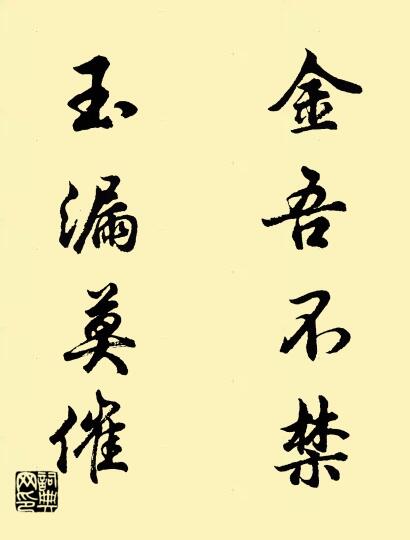 金吾不禁
玉漏莫催
詞典网印